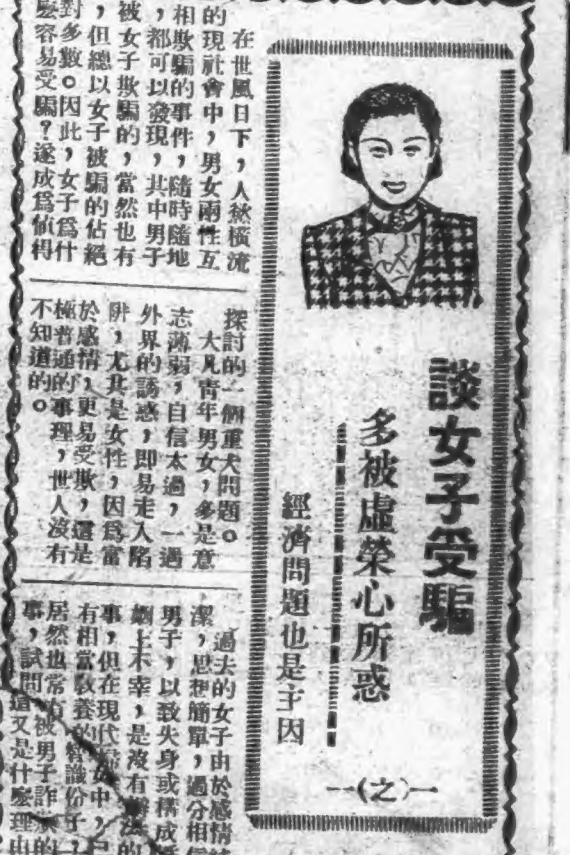 談女子受騙
多被虛榮心所惑
經濟問題也是主因
—(之)—
在世風日下，人慾橫流
的現社會中，男女兩性互
相欺騙的事件，隨時隨地
，都可以發現，其中男子
被女子欺騙的，當然也有
，但總以女子被騙的佔絕
對多數。因此，女子爲什
麽容易受騙？遂成爲値得
探討的一個重大問題。
大凡靑年男女，多是意
志薄弱，自信太過，一遇
外界的誘惑，卽易走入陷
阱，尤其是女性，因爲富
於感情，更易受欺，這是
極普通的事理，世人沒有
不知道的。
過去的女子由於感情
潔，思想簡單，過分相信
男子，以致失身或構成
劇上不幸，是沒有辦法的
事，但在現代婦女中，
有相當敎養的智識份子，
居然也常有被男子詐
事，試問這又是什麽理由